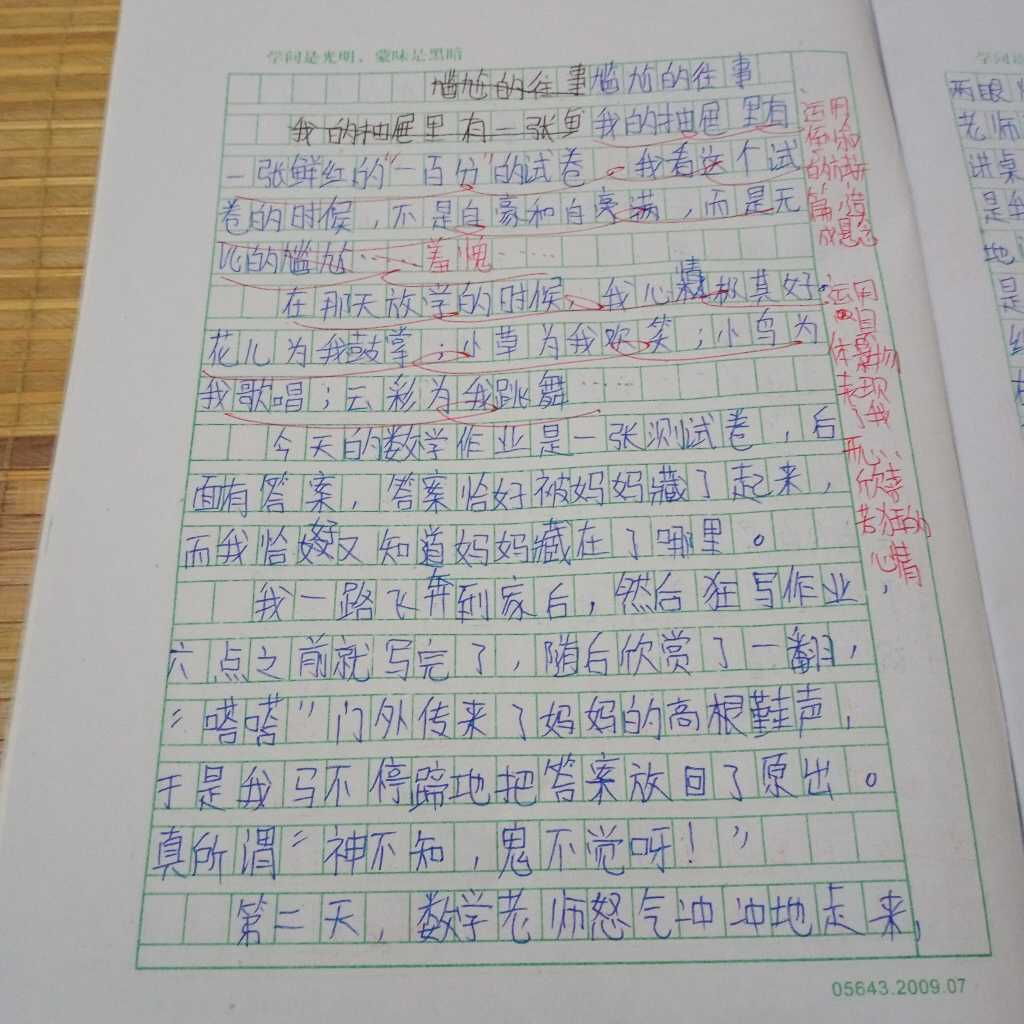 学问是光明，蒙昧是黑暗
尴尬的往事尴尬的往事
我的抽屉里有一张鱼我的抽屉里有
一张鲜红的"一百分"的试卷。我看这个试
卷的时候，不是自豪和自亮满，而是无
比的尴尬……羞愧……
在那天放学的时候，我心情极其好。
花儿为我鼓掌；小草为我欢笑；小鸟为
我歌唱；云彩为我跳舞……
今天的数学作业是一张测试卷，后
面有答案，答案恰好被妈妈藏了起来，
而我恰好又知道妈妈藏在了哪里。
我一路飞奔到家后，然后狂写作业，
六点之前就写完了，随后欣赏了一翻，
"嗒嗒"门外传来了妈妈的高根鞋声，
于是我马不停蹄地把答案放回了原出。
真所谓"神不知，鬼不觉呀！"
第二天，数学老师怒气冲冲地走来，
运用
的
篇，造
成悬念
运用
物
表现
了我
开心、
欣喜
若狂的
心情
05643.2009.07
学问
两眼
老师
讲桌
是
地
是